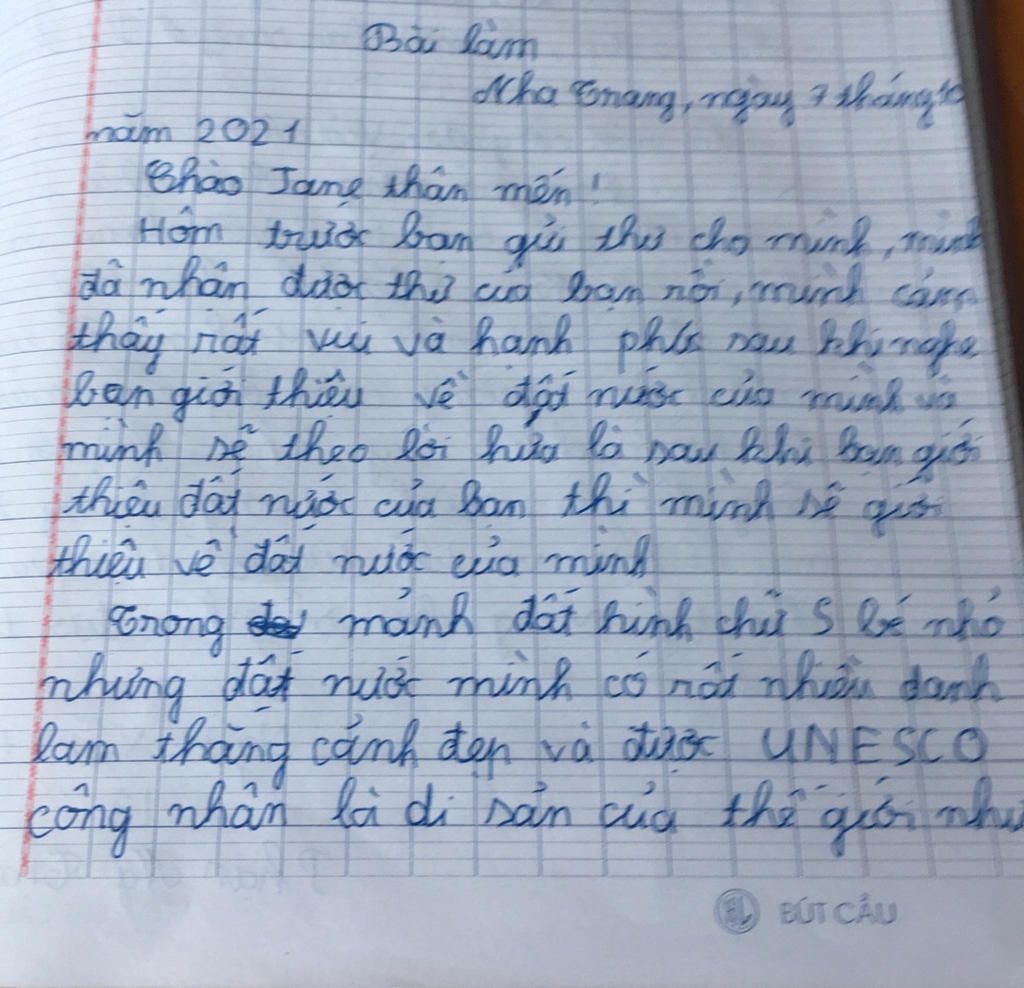 Bài làm
Nha Trang, ngày 7 tháng 10
năm 2021
Chào Jane thân mến!
Hôm trước bạn gửi thư cho mình, mình
đã nhận được thư của bạn rồi, mình cảm
thấy rất vui và hạnh phúc sau khi nghe
bạn giới thiệu về đất nước của mình và
mình sẽ theo lời hứa là sau khi bạn giới
thiệu đất nước của bạn thì mình sẽ giới
thiệu về đất nước của mình
Trong mảnh đất hình chữ S bé nhỏ
nhưng đất nước mình có rất nhiều danh
lam thắng cảnh đẹp và được UNESCO
công nhân là di sản của thế giới như
BÚT CÂU